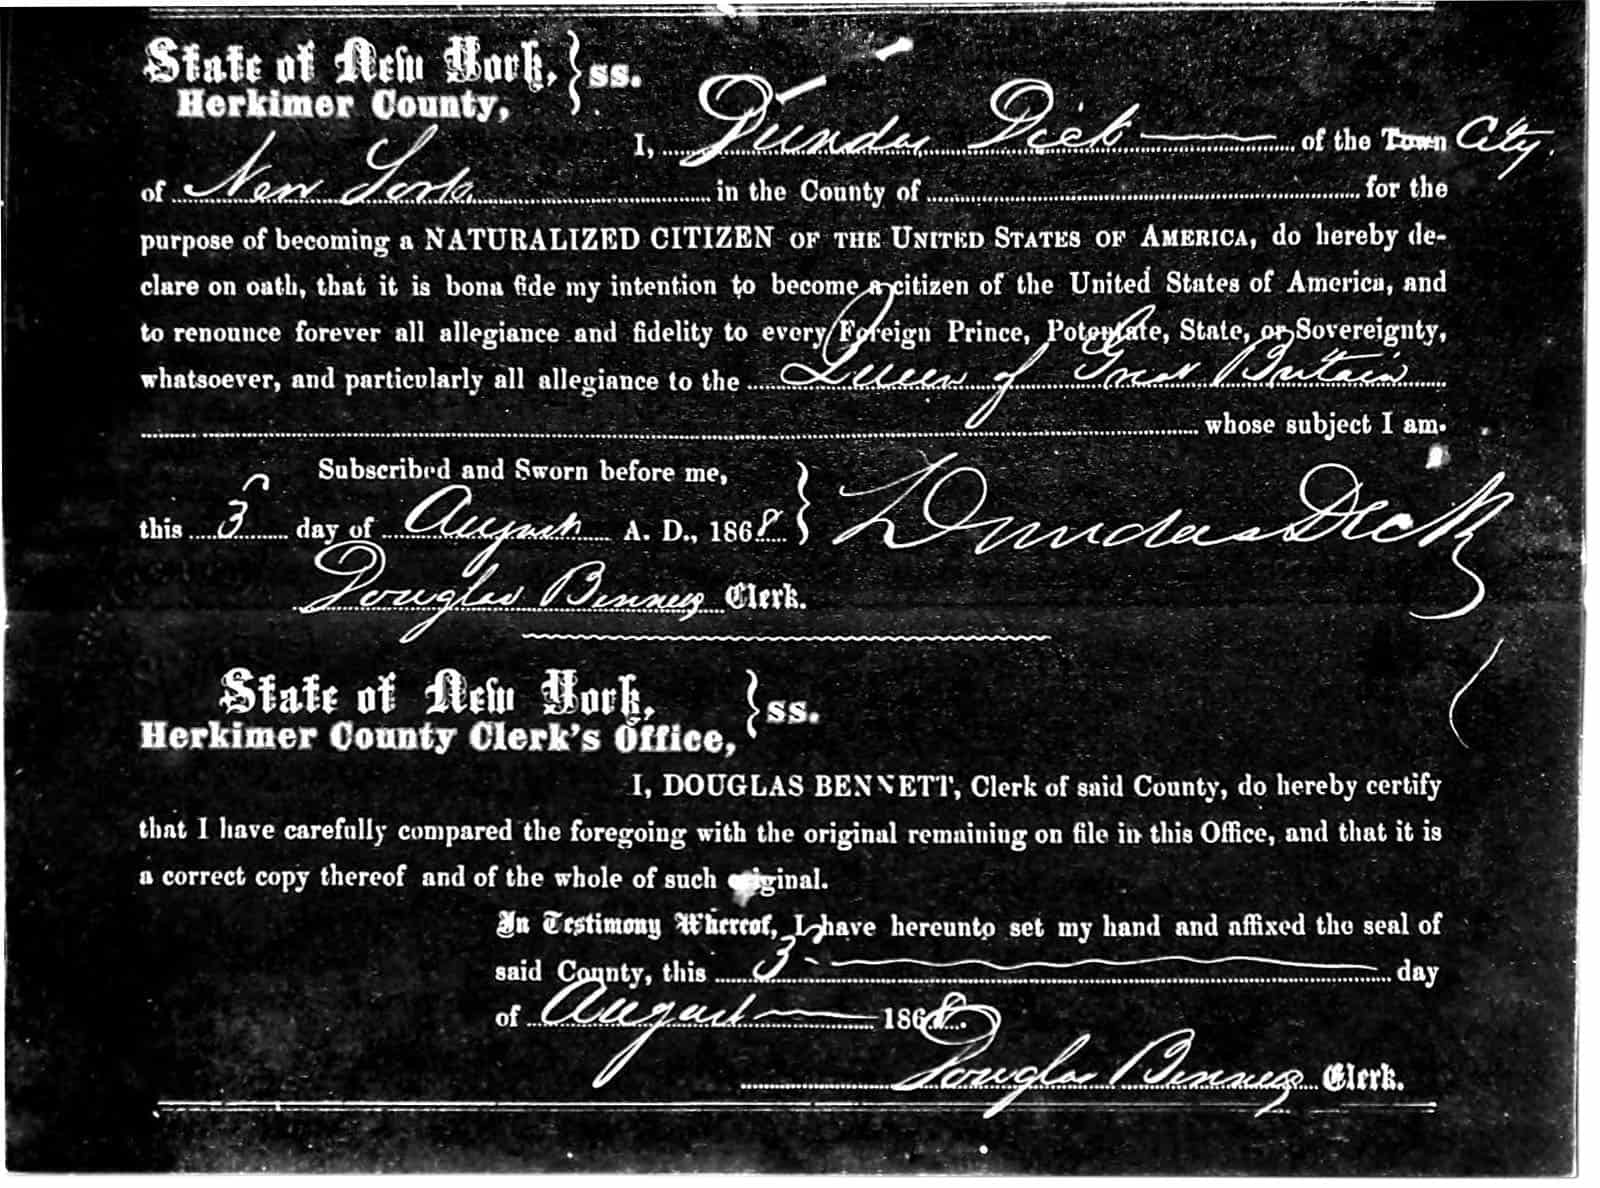 State of New York, } ss.
Herkimer County,
I, Dundas Dick of the Town City.
of New York in the County of for the
purpose of becoming a NATURALIZED CITIZEN OF THE UNITED STATES OF AMERICA, do hereby de-
clare on oath, that it is bona fide my intention to become a citizen of the United States of America, and
to renounce forever all allegiance and fidelity to every Foreign Prince, Potentate, State, or Sovereignty,
whatsoever, and particularly all allegiance to the Queen of Great Britain
whose subject I am.
Subscribed and Sworn before me,
this 3 day of August A. D., 1868 } Dundas Dick
Douglas Bennett Clerk.
State of New York, } ss.
Herkimer County Clerk's Office,
I, DOUGLAS BENNETT, Clerk of said County, do hereby certify
that I have carefully compared the foregoing with the original remaining on file in this Office, and that it is
a correct copy thereof and of the whole of such original.
In Testimony Whereof, I have hereunto set my hand and affixed the seal of
said County, this 3 day
of August 1868.
Douglas Bennett Clerk.